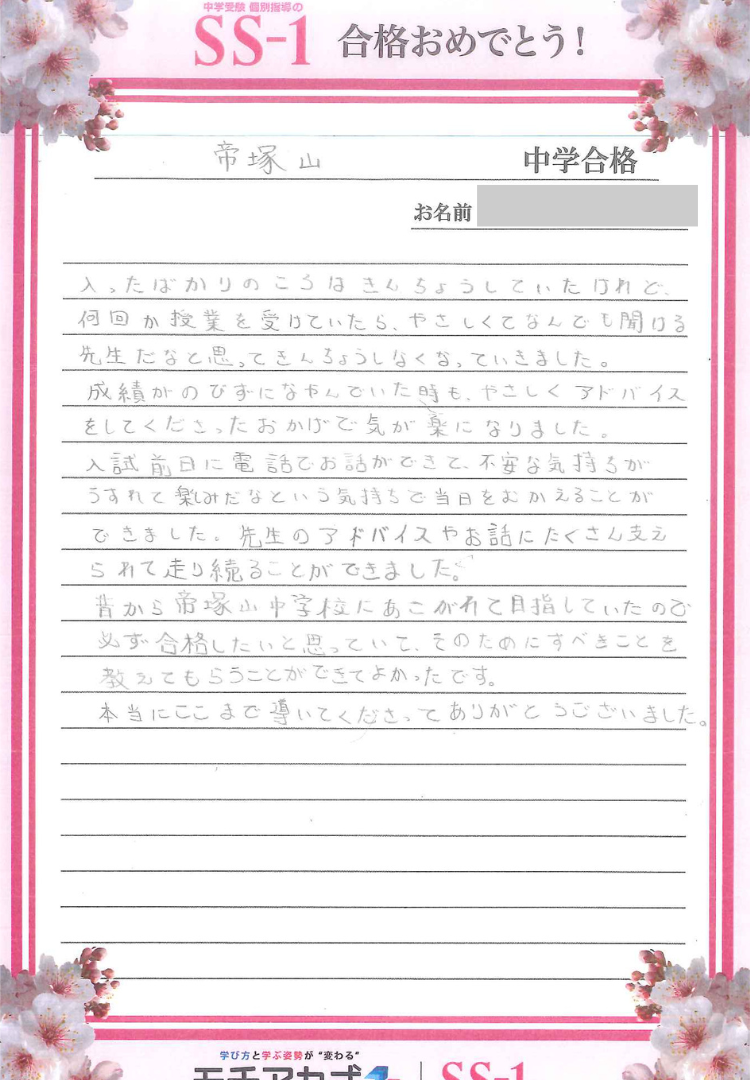 中学受験 個別指導の
SS-1 合格おめでとう!
帝塚山 中学合格
お名前
入ったばかりのころはきんちょうしていたけれど、
何回か授業を受けていたら、やさしくてなんでも聞ける
先生だなと思ってきんちょうしなくなっていきました。
成績がのびずになやんでいた時も、やさしくアドバイス
をしてくださったおかげで気が楽になりました。
入試前日に電話でお話ができて、不安な気持ちが
うすれて楽しみだなという気持ちで当日をむかえることが
できました。先生のアドバイスやお話にたくさん支え
られて走り続ることができました。
昔から帝塚山中学校にあこがれて目指していたので
必ず合格したいと思っていて、そのためにすべきことを
教えてもらうことができてよかったです。
本当にここまで導いてくださってありがとうございました。
学び方と学ぶ姿勢が"変わる"
SS-1